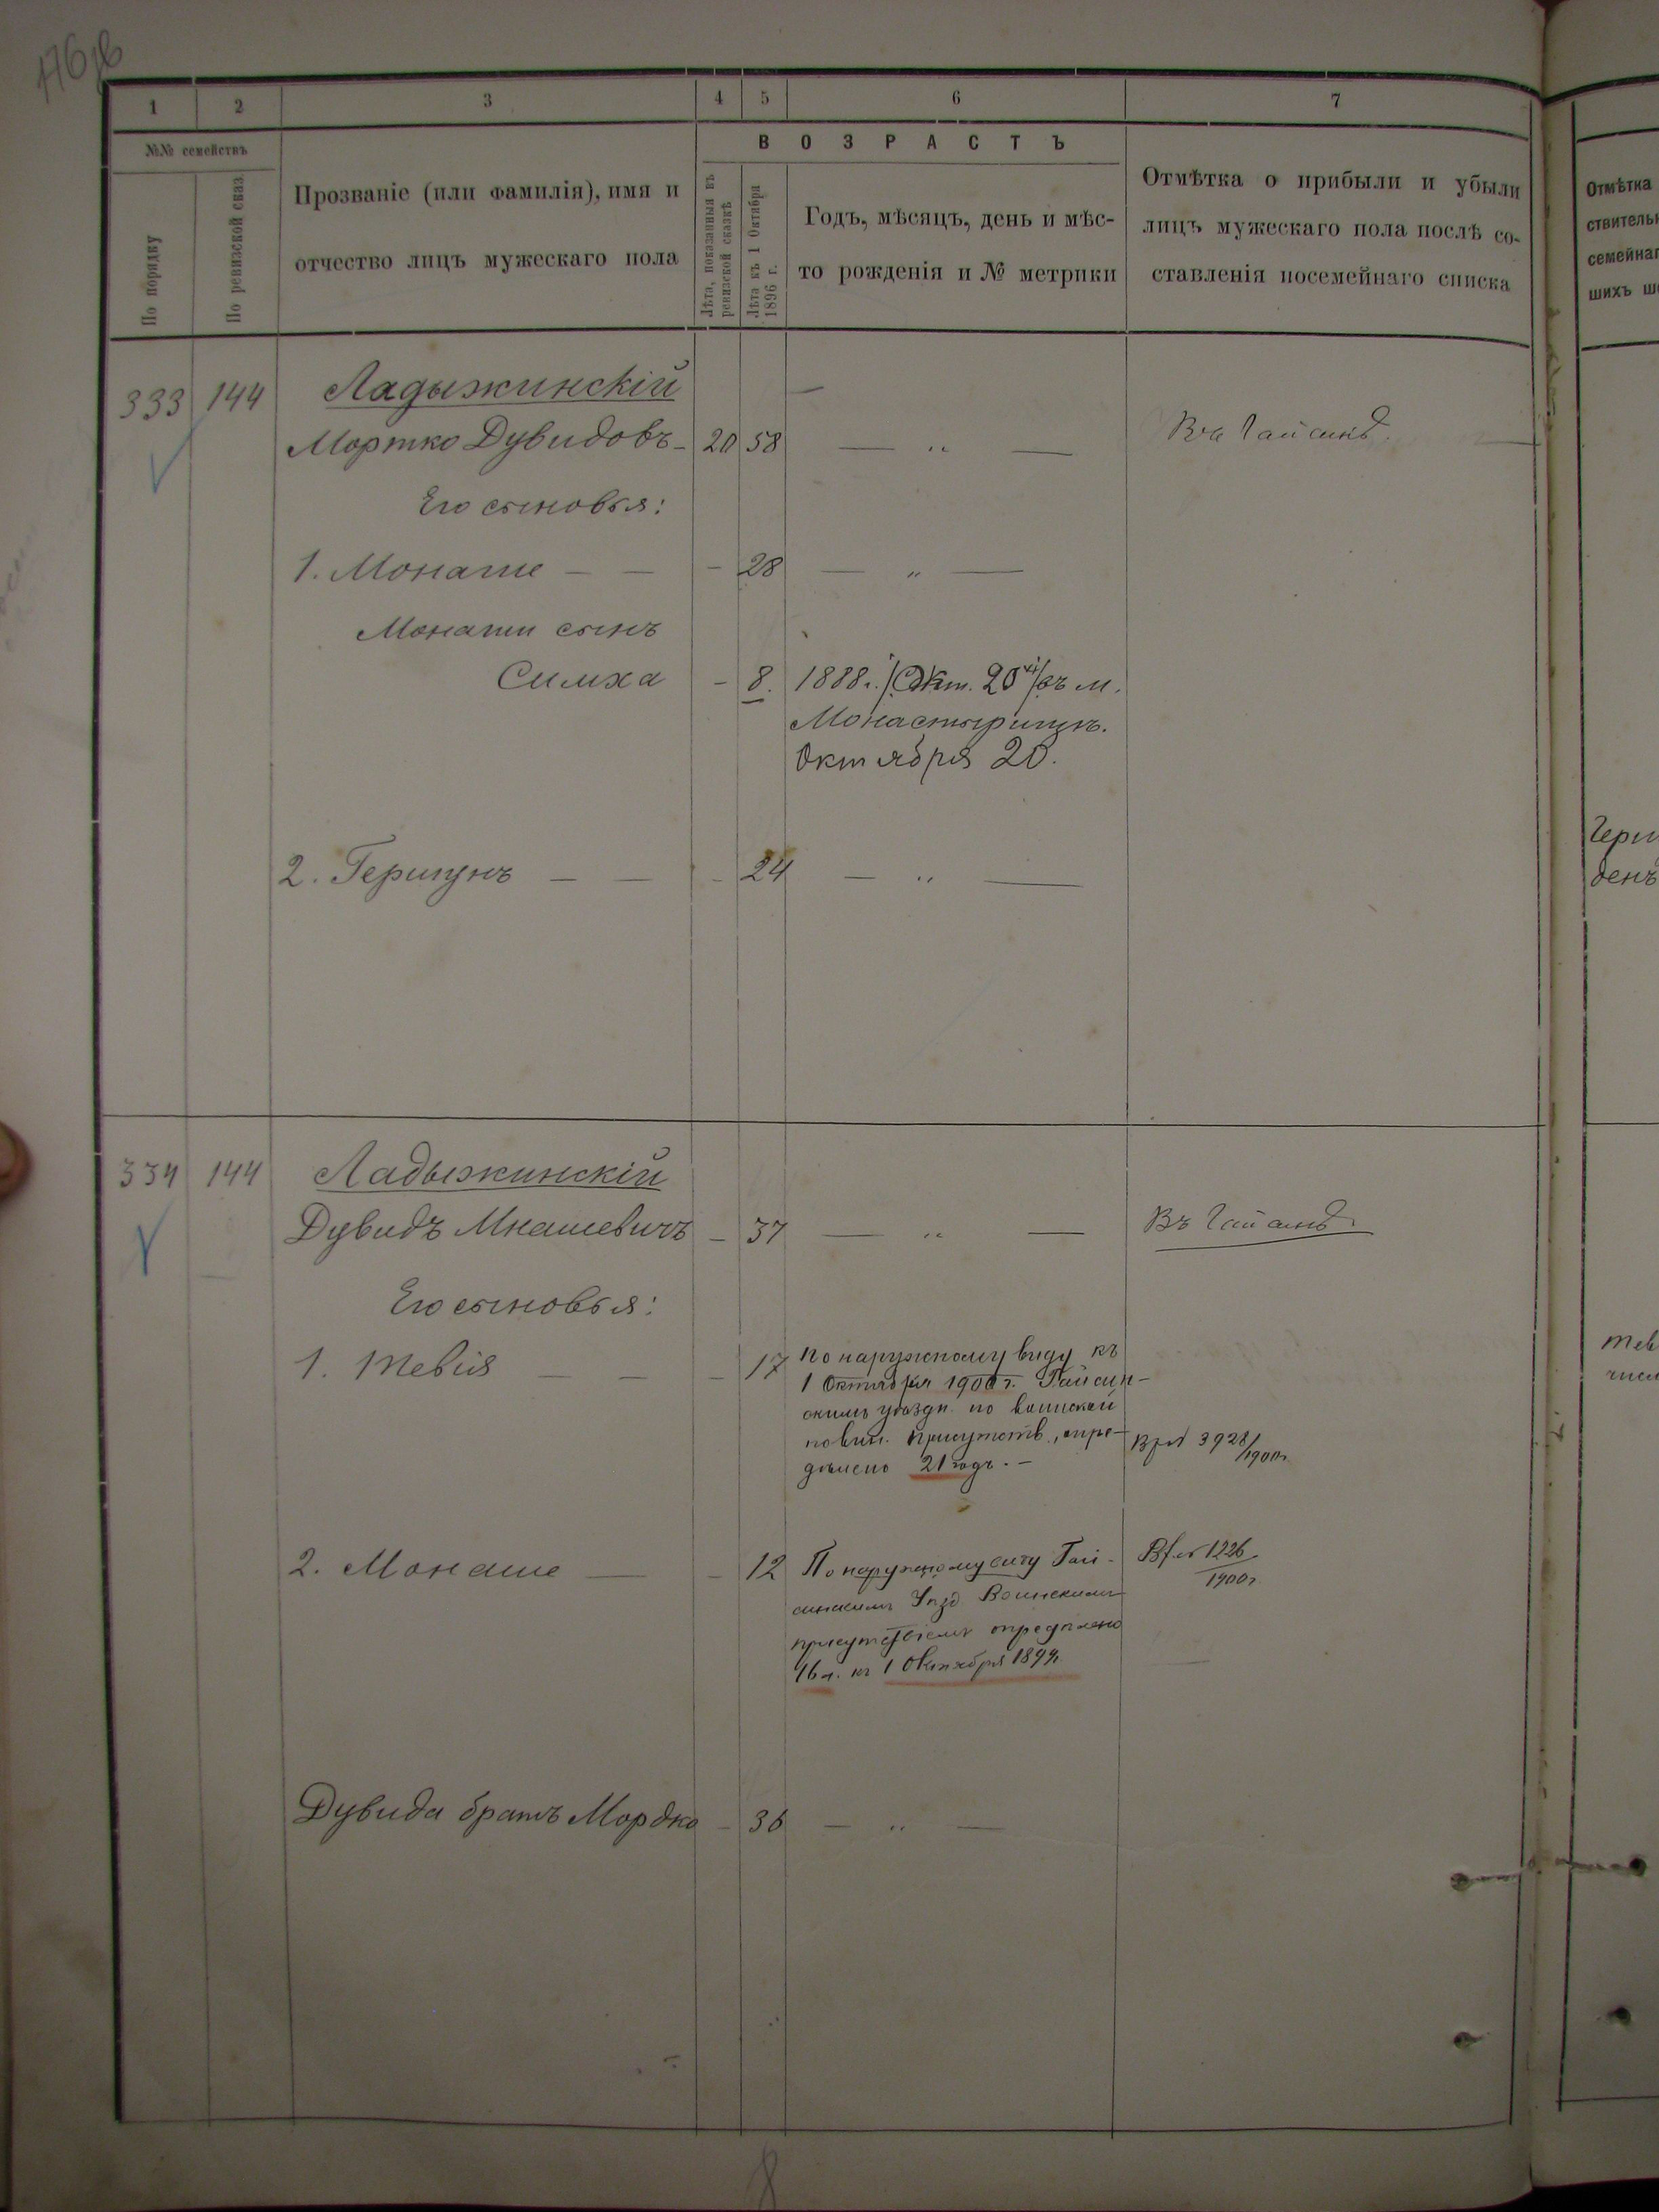 176 об
1 2 3 4 5 6 7
№№ семействъ
По порядку
По ревизской сказ
Прозваніе (или фамилія), имя и
отчество лицъ мужескаго пола
ВОЗРАСТЪ
Лѣта, показанныя въ
ревизской сказкѣ
Лѣта къ 1 Октября
1896 г.
Годъ, мѣсяцъ, день и мѣс-
то рожденія и № метрики
Отмѣтка о прибыли и убыли
лицъ мужескаго пола послѣ со-
ставленія посемейнаго списка
Отмѣтка
ствительн
семейнаг
шихъ
333 144 Ладыжинскій
Мортко Дувидовъ - 20 58 — " — Гайсинѣ.
Его сыновья:
1. Монаше — — - 28 — " —
Монаши сынъ
Симха - 8. 1888 г. Окт. 20 въ м.
Монастырищѣ.
Октября 20.
2. Гершунъ — — - 24 — " —
334 144 Ладыжинскій
Дувидъ Мнашевичъ - 37 — " — Въ Гайсинѣ
Его сыновья:
1. Тевія — — - 17 По наружному виду къ
1 Октября 1900 г. Гайсин-
скимъ уѣздн. по воинской
повин. присутств., опре-
дѣлено 21 годъ. -
3928/1900 г.
2. Монаше — - 12 По наружному виду Гай-
синскимъ Уѣзд. Воинскимъ
присутствіемъ опредѣлено
16 л. къ 1 Октября 1899 г.
1226
1900 г.
Дувида братъ Мордко - 36 — " —
Герш
день
Тев
числ